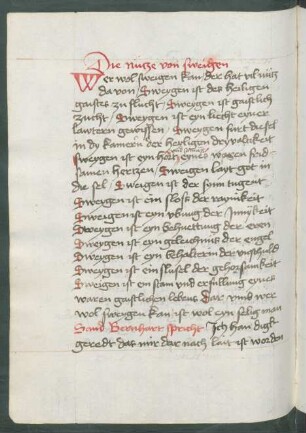 Die nutze von sweigen
Wer wol sweigen kan / der hat vil nütz
da von / Sweygen ist des heiligen
gaistes zu flucht / Sweygen ist gaistlich
zucht / Sweygen ist ey liecht eyner
lautern gewissen / Sweygen furt die sel
in dy kamern der heyligen dryualtikeit
Sweygen ist eyn hort eynes
samen hertzen / Sweigen layt got in
die sel / Sweigen ist der sunn tugent
Sweygen ist ein sloss der raynikeit
Sweigen ist eyn vbung der Innikeyt
Sweygen ist eyn behuettung der eren
Sweygen ist eyn geleychnuss der engel
Sweygen ist eyn behalterin der vnschuld
Sweygen ist ein slussel der gehorsamkeit
Sweygen ist ein stam vnd erfullung eynes
waren gaistlichen lebens Dar vmb wer
wol sweygen kan ist wol eyn selig man
Sand Bernhart spricht Ich han dick
geredt das mir dar nach layt ist worden